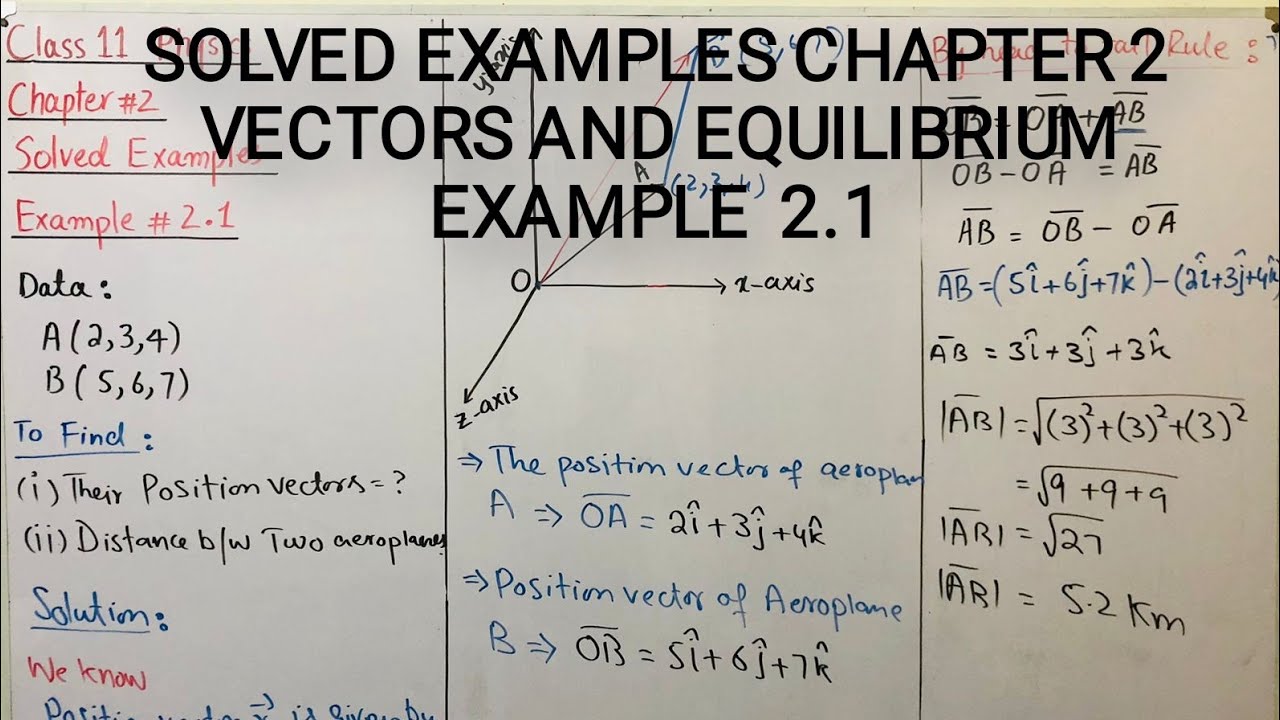 SOLVED EXAMPLES CHAPTER 2
VECTORS AND EQUILIBRIUM
EXAMPLE 2.1
Class 11 Physics
Chapter #2
Solved Examples
Example # 2.1
Data:
A(2,3,4)
B(5,6,7)
To Find:
(i) Their Position vectors=?
(ii) Distance b/w Two aeroplanes
Solution:
We know
Position vector r⃗ is given by
y-axis
B (5,6,7)
A (2,3,4)
O
x-axis
z-axis
⇒ The position vector of aeroplan
A ⇒ O̅A̅ = 2î+3ĵ+4k̂
⇒ Position vector of Aeroplane
B ⇒ O̅B̅ = 5î+6ĵ+7k̂
By head to tail Rule :
O̅B̅ = O̅A̅ + A̅B̅
O̅B̅ - O̅A̅ = A̅B̅
A̅B̅ = O̅B̅ - O̅A̅
A̅B̅ = (5î+6ĵ+7k̂)-(2î+3ĵ+4k̂
A̅B̅ = 3î+3ĵ+3k̂
|A̅B̅| = √(3)²+(3)²+(3)²
= √9+9+9
|A̅B̅| = √27
|A̅B̅| = 5.2 Km